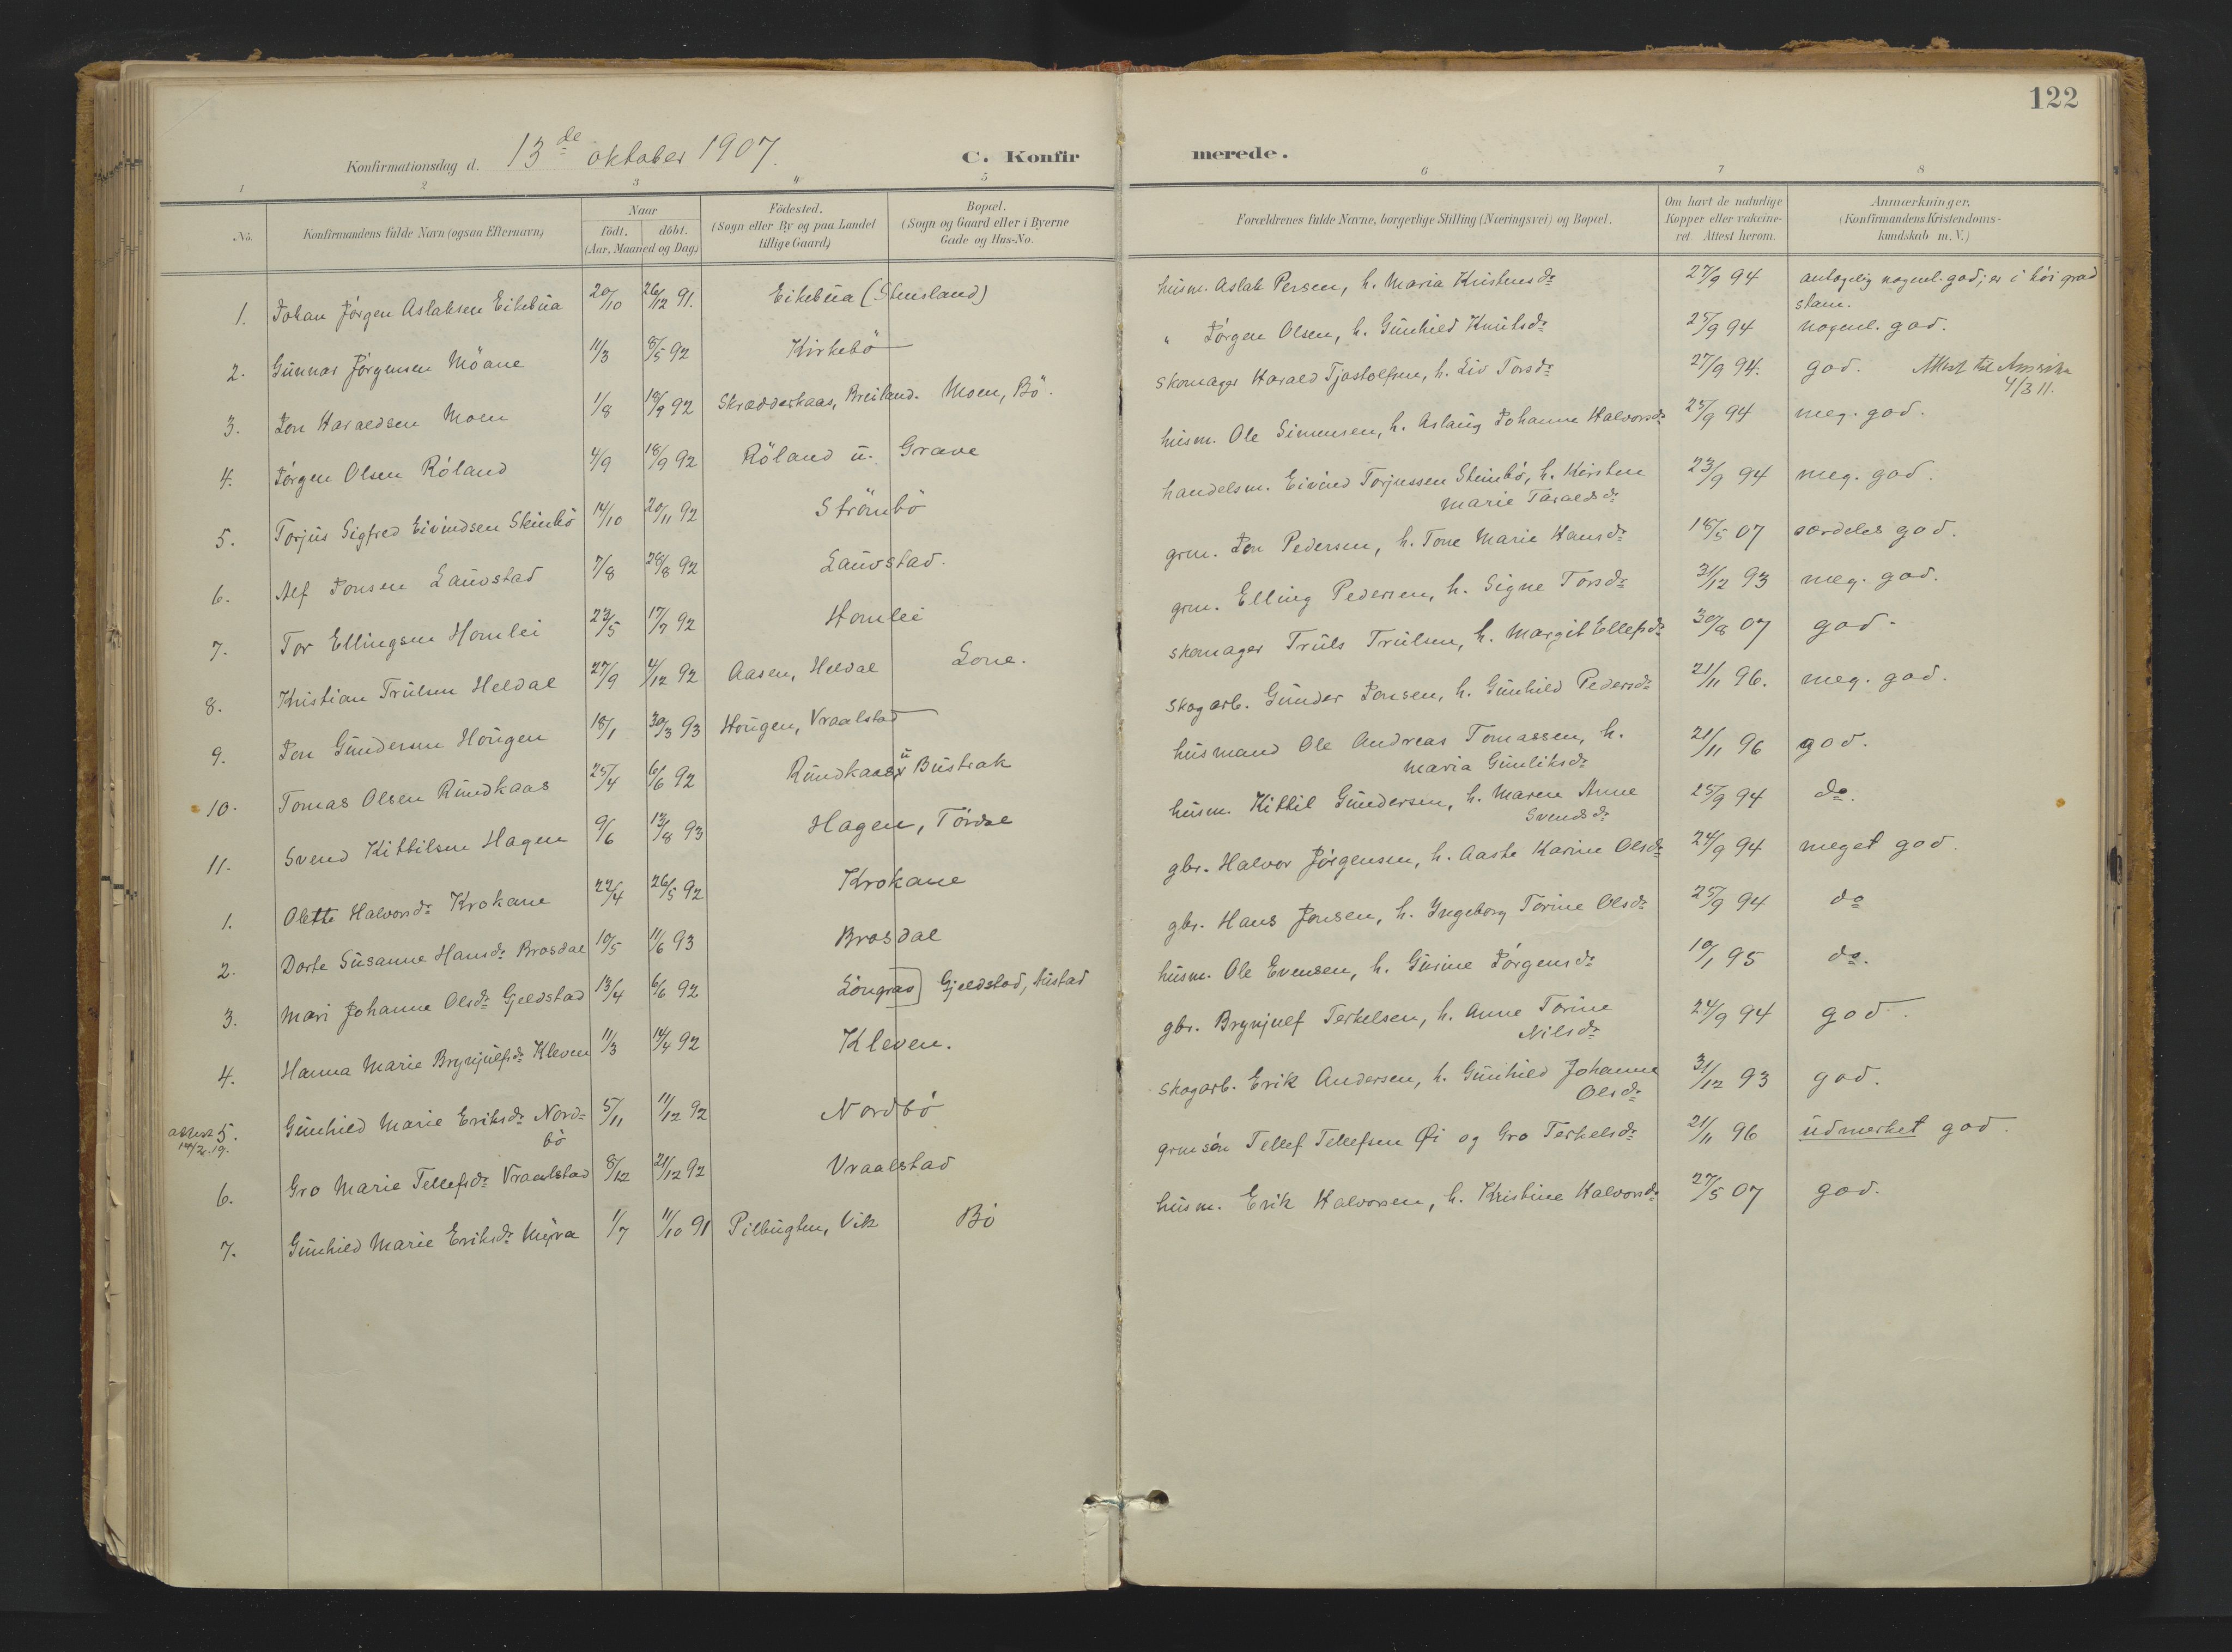 122
Konfirmationsdag d. 13de oktober 1907. C. Konfirmerede.
1 2 3 4 5 6 7 8
No. Konfirmandens fulde Navn (ogsaa Efternavn) Naar födt. döbt. (Aar, Maaned og Dag) Födested. (Sogn eller By og paa Landet tillige Gaard) Bopæl. (Sogn og Gaard eller i Byerne Gade og Hus-No. Forældrenes fulde Navne, borgerlige Stilling (Næringsvei) og Bopæl. Om havt de naturlige Kopper eller vakcineret. Attest herom. Anmærkninger. (Konfirmandens Kristendomskundskab m. V.)
1. Johan Jörgen Aslaksen Eikebua 20/10 26/12 91. Eikebua (Stensland) husm. Aslak Persen, h. Maria Kristensdr 27/9 94 antagelig nogenl. god; er i höi grad
stam.
2. Gunnar Jörgensen Möane 11/3 8/5 92 Kirkebö " Jörgen Olsen, h. Gunhild Knutsdr 25/9 94 nogenl. god.
3. Jon Haraldsen Moen 1/8 18/9 92 Skrædderkaas, Breiland. Moen, Bö. Skomager Harald Tjostolfsen, h. Liv Torsdr 27/9 94. god. Attest til Amerika
4/3 11.
4. Jörgen Olsen Röland 4/9 18/9 92 Röland u. Grave husm. Ole Simensen, h. Aslaug Johanne Halvorsdr 25/9 94 meg. god.
5. Torjus Sigfred Eivindsen Steinbö 14/10 20/11 92 Strömbö handelsm. Eivind Torjussen Steinbö, h. Kirsten
Marie Taraldsdr 23/9 94 meg. god.
6. Alf Jonsen Lauvstad 7/8 28/8 92 Lauvstad. grm. Jon Pedersen, h. Tone Marie Hansdr 18/5 07 særdeles god.
7. Tor Ellingsen Homlei 23/5 17/7 92 Homlei grm. Elling Pedersen, h. Signe Torsdr 31/12 93 meg. god.
8. Kristian Trulsen Heldal 27/9 4/12 92 Aasen, Heldal Lone. skomager Truls Trulsen, h. Margit Ellefsdr 30/8 07 god.
9. Jon Gundersen Hougen 18/1 30/3 93 Hougen, Vraalstad Skogarb. Gunder Jonsen, h. Gunhild Pedersdr 21/11 96. meg. god.
10. Tomas Olsen Rundkaas 25/4 6/6 92 Rundkaas u Bustrak husmand Ole Andreas Tomassen, h.
Maria Gunliksdr 21/11 96 god.
11. Svend Kittilsen Hagen 9/6 13/8 93 Hagen, Tördal husm. Kittil Gundersen, h. Maren Anne
Svendsdr 25/9 94 do.
1. Olette Halvorsdr Krokane 22/4 26/5 92 Krokane gbr. Halvor Jörgensen, h. Aaste Karine Olsdr 24/9 94 meget god.
2. Dorte Susanne Hansdr Brosdal 10/5 11/6 93 Brosdal gbr. Hans Jonsen, h. Ingeborg Torine Olsdr 25/9 94 do
3. Mari Johanne Olsdr Gjeldstad 13/4 6/6 92 Löngras Gjeldstad, Nistad husm. Ole Evensen, h. Gurine Jörgensdr 10/1 95 do.
4. Hanna Marie Brynjulfsdr Kleven 11/3 14/4 92 Kleven. gbr. Brynjulf Terkelsen, h. Anne Torine
Nilsdr 24/9 94 god.
attest 5. Gunhild Marie Eriksdr Nord-
bö 5/11 11/12 92 Nordbö skogarb. Erik Andersen, h. Gunhild Johanne
Olsdr 31/12 93 god.
6. Gro Marie Tellefsdr Vraalstad 8/12 21/12 92 Vraalstad grmsön Tellef Tellefsen Öi og Gro Terkelsdr 21/11 96 udmerket god.
7. Gunhild Marie Eriksdr Myra 1/7 11/10 91 Pilbugten, Vik Bö husm. Erik Halvorsen, h. Kristine Halvorsdr 27/5 07 god.